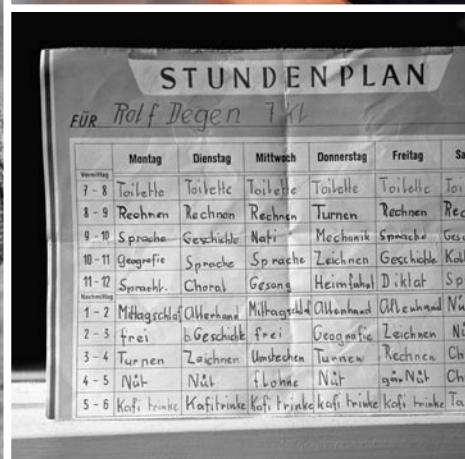 STUNDENPLAN
FÜR Rolf Degen 7 Kl
Montag Dienstag Mittwoch Donnerstag Freitag Sa
Vormittag
7 - 8 Toilette Toilette Toilette Toilette Toilette Toi
8 - 9 Rechnen Rechnen Rechnen Turnen Rechnen Rec
9 - 10 Sprache Geschichte Nati Mechanik Sprache Ges
10 - 11 Geografie Sprache Sprache Zeichnen Geschichte
11 - 12 Sprachl. Choral Gesang Heimfahrt Diktat Sp
Nachmittag
1 - 2 Mittagschlaf Allerhand Mittagschlaf Allerhand Allerhand Nü
2 - 3 frei b.Geschichte frei Geografie Zeichnen Nü
3 - 4 Turnen Zeichnen Umstechen Turnen Rechnen Ch
4 - 5 Nüt Nüt flohne Nüt gar Nüt Ch
5 - 6 Kafi trinke Kafi trinke Kafi trinke Kafi trinke Kafi trinke Ta